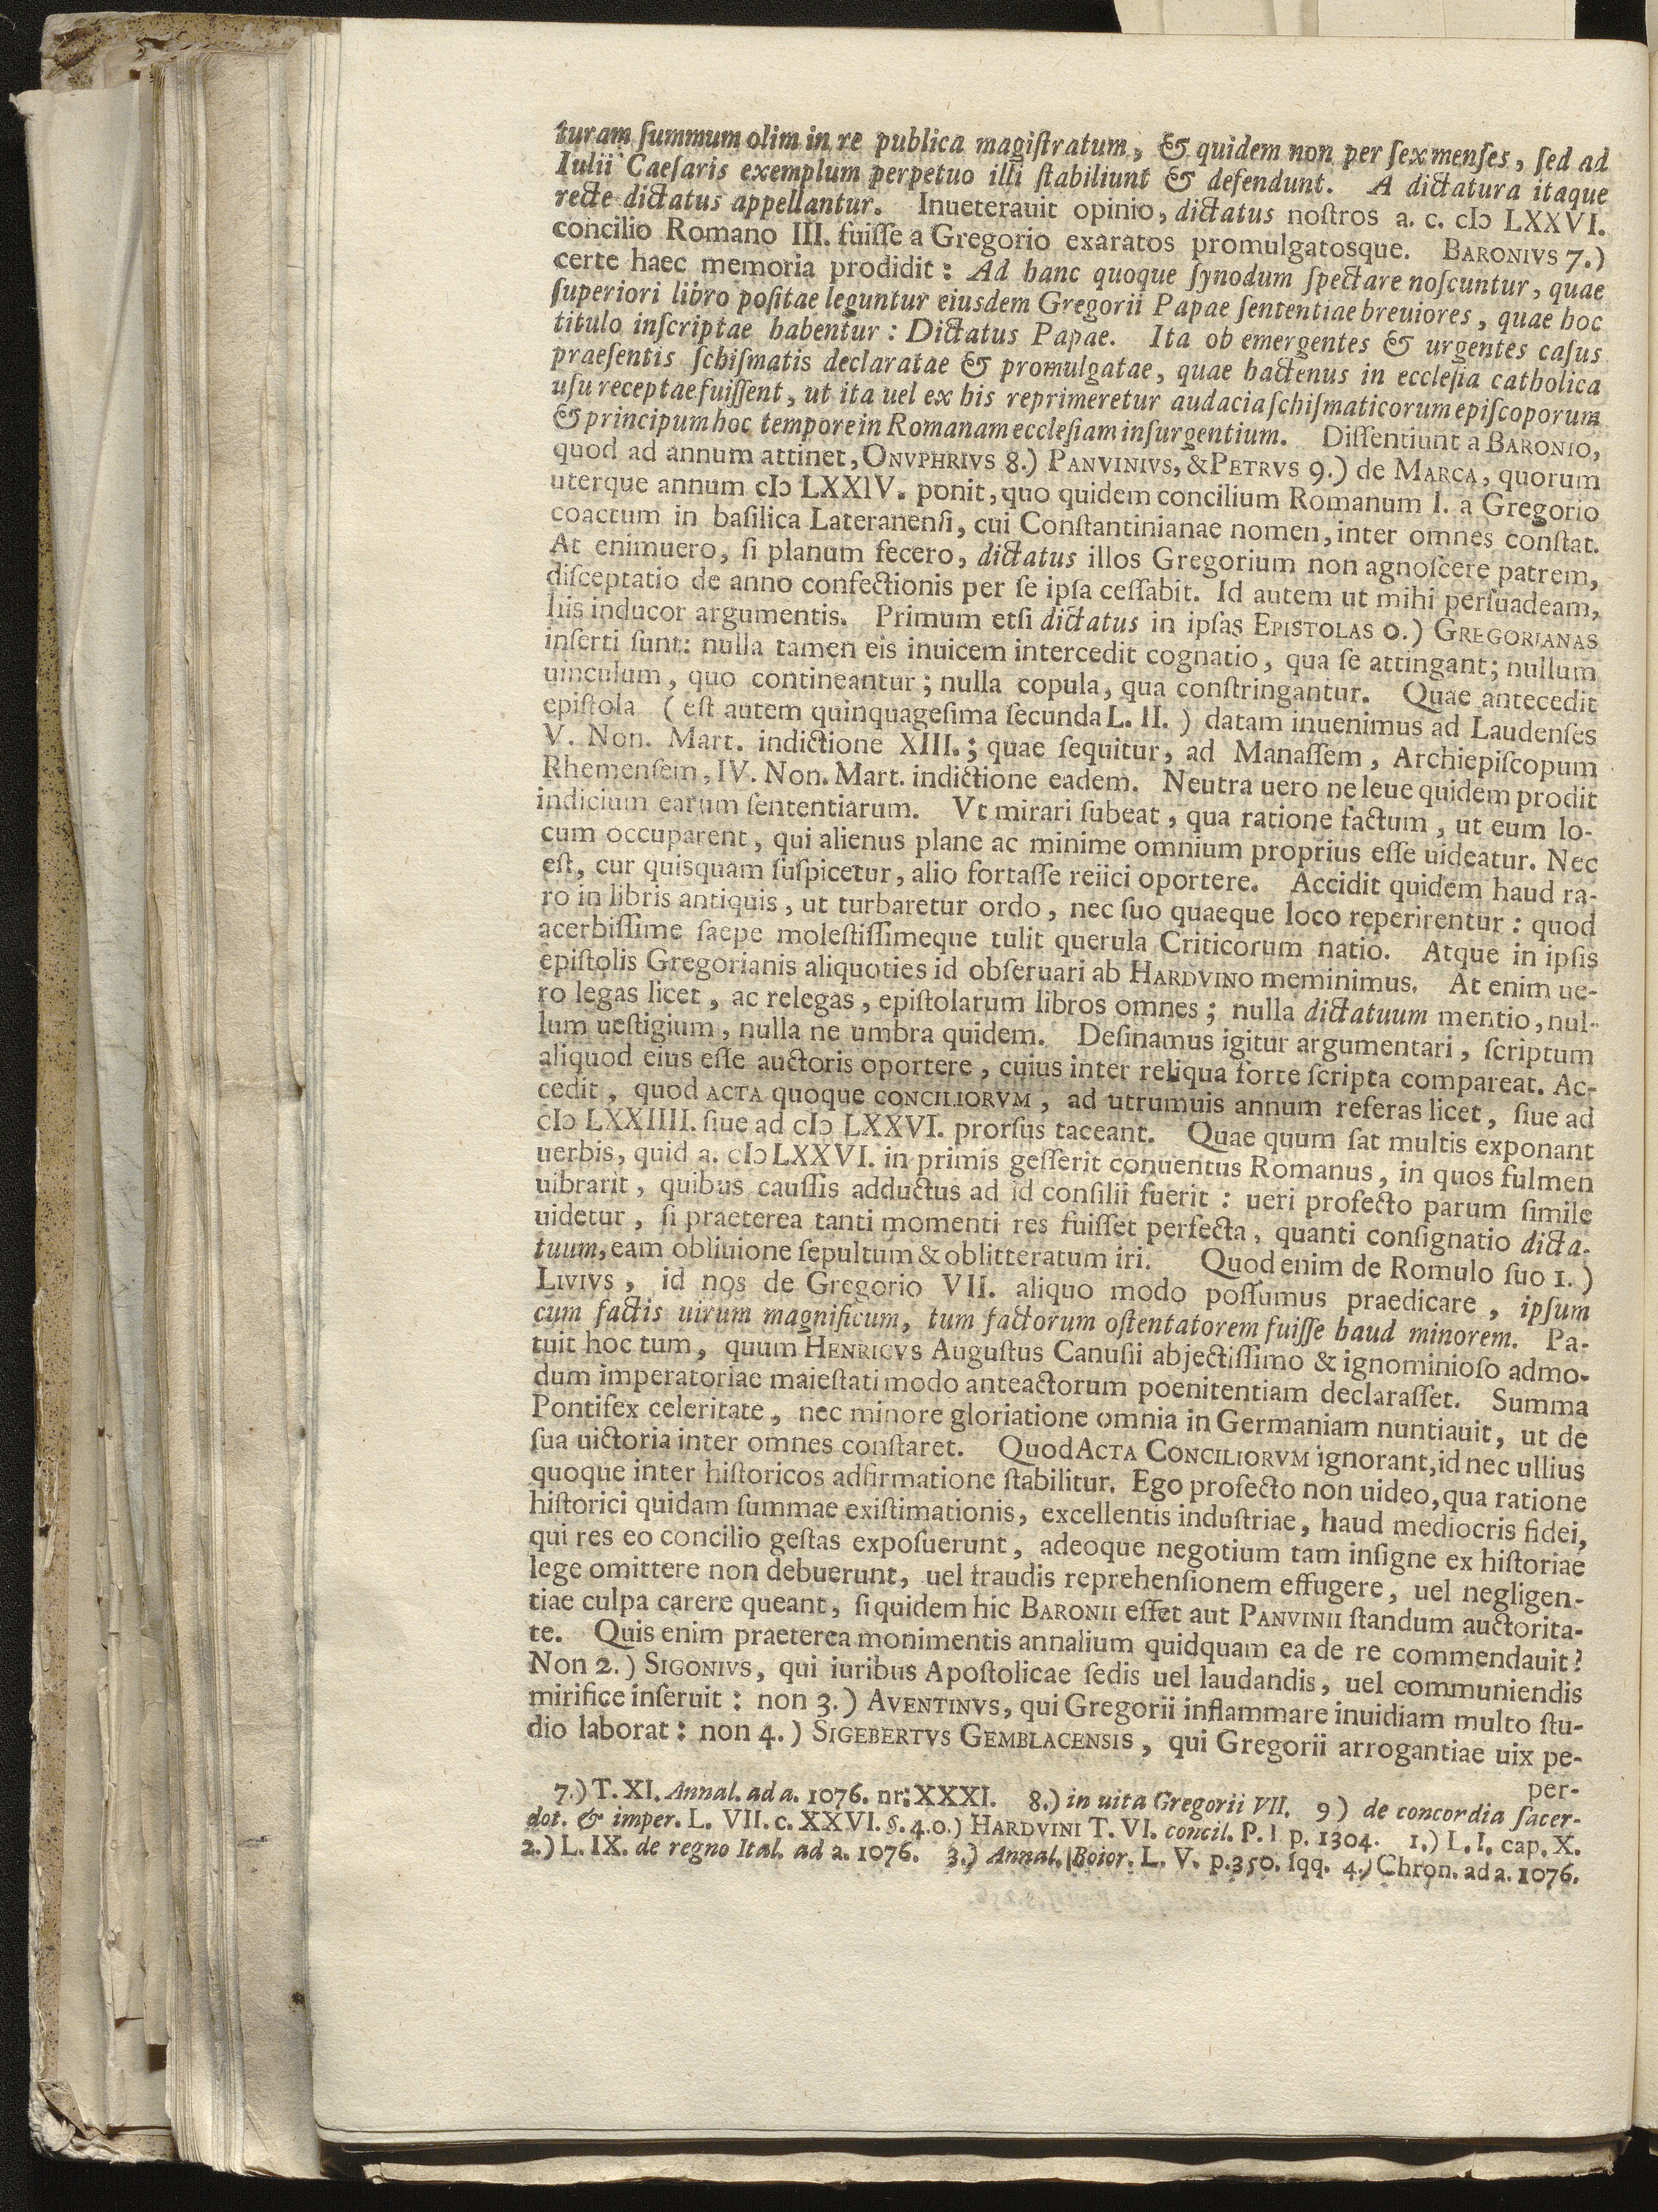 turam ſummum olim in re publica magiſtratum, & quidem non per ſex menſes, ſed ad
Iulii Caeſaris exemplum perpetuo illi ſtabiliunt & defendunt. A dictatura itaque
recte dictatus appellantur. Inueterauit opinio, dictatus noſtros a. c. cIɔ LXXVI.
concilio Romano III. fuiſſe a Gregorio exaratos promulgatosque. BARONIVS 7.)
certe haec memoria prodidit: Ad hanc quoque ſynodum ſpectare noſcuntur, quae
ſuperiori libro poſitae leguntur eiusdem Gregorii Papae ſententiae breuiores, quae hoc
titulo inſcriptae habentur: Dictatus Papae. Ita ob emergentes & urgentes caſus
praeſentis ſchiſmatis declaratae & promulgatae, quae hactenus in eccleſia catholica
uſu receptae fuiſſent, ut ita uel ex his reprimeretur audacia ſchiſmaticorum epiſcoporum
& principum hoc tempore in Romanam eccleſiam inſurgentium. Diſſentiunt a BARONIO,
quod ad annum attinet, ONVPHRIVS 8.) PANVINIVS, & PETRVS 9.) de MARCA, quorum
uterque annum cIɔ LXXIV. ponit, quo quidem concilium Romanum I. a Gregorio
coactum in baſilica Lateranenſi, cui Conſtantinianae nomen, inter omnes conſtat.
At enimuero, ſi planum fecero, dictatus illos Gregorium non agnoſcere patrem,
diſceptatio de anno confectionis per ſe ipſa ceſſabit. Id autem ut mihi perſuadeam,
his inducor argumentis. Primum etſi dictatus in ipſas EPISTOLAS 0.) GREGORIANAS
inſerti ſunt: nulla tamen eis inuicem intercedit cognatio, qua ſe attingant; nullum
uinculum, quo contineantur; nulla copula, qua conſtringantur. Quae antecedit
epiſtola (eſt autem quinquageſima ſecunda L. II.) datam inuenimus ad Laudenſes
V. Non. Mart. indictione XIII.; quae ſequitur, ad Manaſſem, Archiepiſcopum
Rhemenſem, IV. Non. Mart. indictione eadem. Neutra uero ne leue quidem prodit
indicium earum ſententiarum. Vt mirari ſubeat, qua ratione factum, ut eum lo-
cum occuparent, qui alienus plane ac minime omnium proprius eſſe uideatur. Nec
eſt, cur quisquam ſuſpicetur, alio fortaſſe reiici oportere. Accidit quidem haud ra-
ro in libris antiquis, ut turbaretur ordo, nec ſuo quaeque loco reperirentur: quod
acerbiſſime ſaepe moleſtiſſimeque tulit querula Criticorum natio. Atque in ipſis
epiſtolis Gregorianis aliquoties id obſeruari ab HARDVINO meminimus. At enim ue-
ro legas licet, ac relegas, epiſtolarum libros omnes; nulla dictatuum mentio, nul-
lum ueſtigium, nulla ne umbra quidem. Deſinamus igitur argumentari, ſcriptum
aliquod eius eſſe auctoris oportere, cuius inter reliqua forte ſcripta compareat. Ac-
cedit, quod ACTA quoque CONCILIORVM, ad utrumuis annum referas licet, ſiue ad
cIɔ LXXIIII. ſiue ad cIɔ LXXVI. prorſus taceant. Quae quum ſat multis exponant
uerbis, quid a. cIɔ LXXVI. in primis geſſerit conuentus Romanus, in quos fulmen
uibrarit, quibus cauſſis adductus ad id conſilii fuerit: ueri profecto parum ſimile
uidetur, ſi praeterea tanti momenti res fuiſſet perfecta, quanti conſignatio dicta-
tuum, eam obliuione ſepultum & oblitteratum iri. Quod enim de Romulo ſuo 1.)
LIVIVS, id nos de Gregorio VII. aliquo modo poſſumus praedicare, ipſum
cum factis uirum magnificum, tum factorum oſtentatorem fuiſſe haud minorem. Pa-
tuit hoc tum, quum HENRICVS Auguſtus Canuſii abjectiſſimo & ignominioſo admo-
dum imperatoriae maieſtati modo anteactorum poenitentiam declaraſſet. Summa
Pontifex celeritate, nec minore gloriatione omnia in Germaniam nuntiauit, ut de
ſua uictoria inter omnes conſtaret. Quod ACTA CONCILIORVM ignorant, id nec ullius
quoque inter hiſtoricos adfirmatione ſtabilitur. Ego profecto non uideo, qua ratione
hiſtorici quidam ſummae exiſtimationis, excellentis induſtriae, haud mediocris fidei,
qui res eo concilio geſtas expoſuerunt, adeoque negotium tam inſigne ex hiſtoriae
lege omittere non debuerunt, uel fraudis reprehenſionem effugere, uel negligen-
tiae culpa carere queant, ſiquidem hic BARONII eſſet aut PANVINII ſtandum auctorita-
te. Quis enim praeterea monimentis annalium quidquam ea de re commendauit?
Non 2.) SIGONIVS, qui iuribus Apoſtolicae ſedis uel laudandis, uel communiendis
mirifice inſeruit: non 3.) AVENTINVS, qui Gregorii inflammare inuidiam multo ſtu-
dio laborat: non 4.) SIGEBERTVS GEMBLACENSIS, qui Gregorii arrogantiae uix pe-
per-
7.) T. XI. Annal. ad a. 1076. nr: XXXI. 8.) in uita Gregorii VII. 9) de concordia ſacer-
dot. & imper. L. VII. c. XXVI. §. 4. 0.) HARDVINI T. VI. concil. P. I p. 1304. 1.) L. I. cap. X.
2.) L. IX. de regno Ital. ad a. 1076. 3.) Annal. Boior. L. V. p. 350. ſqq. 4.) Chron. ad a. 1076.